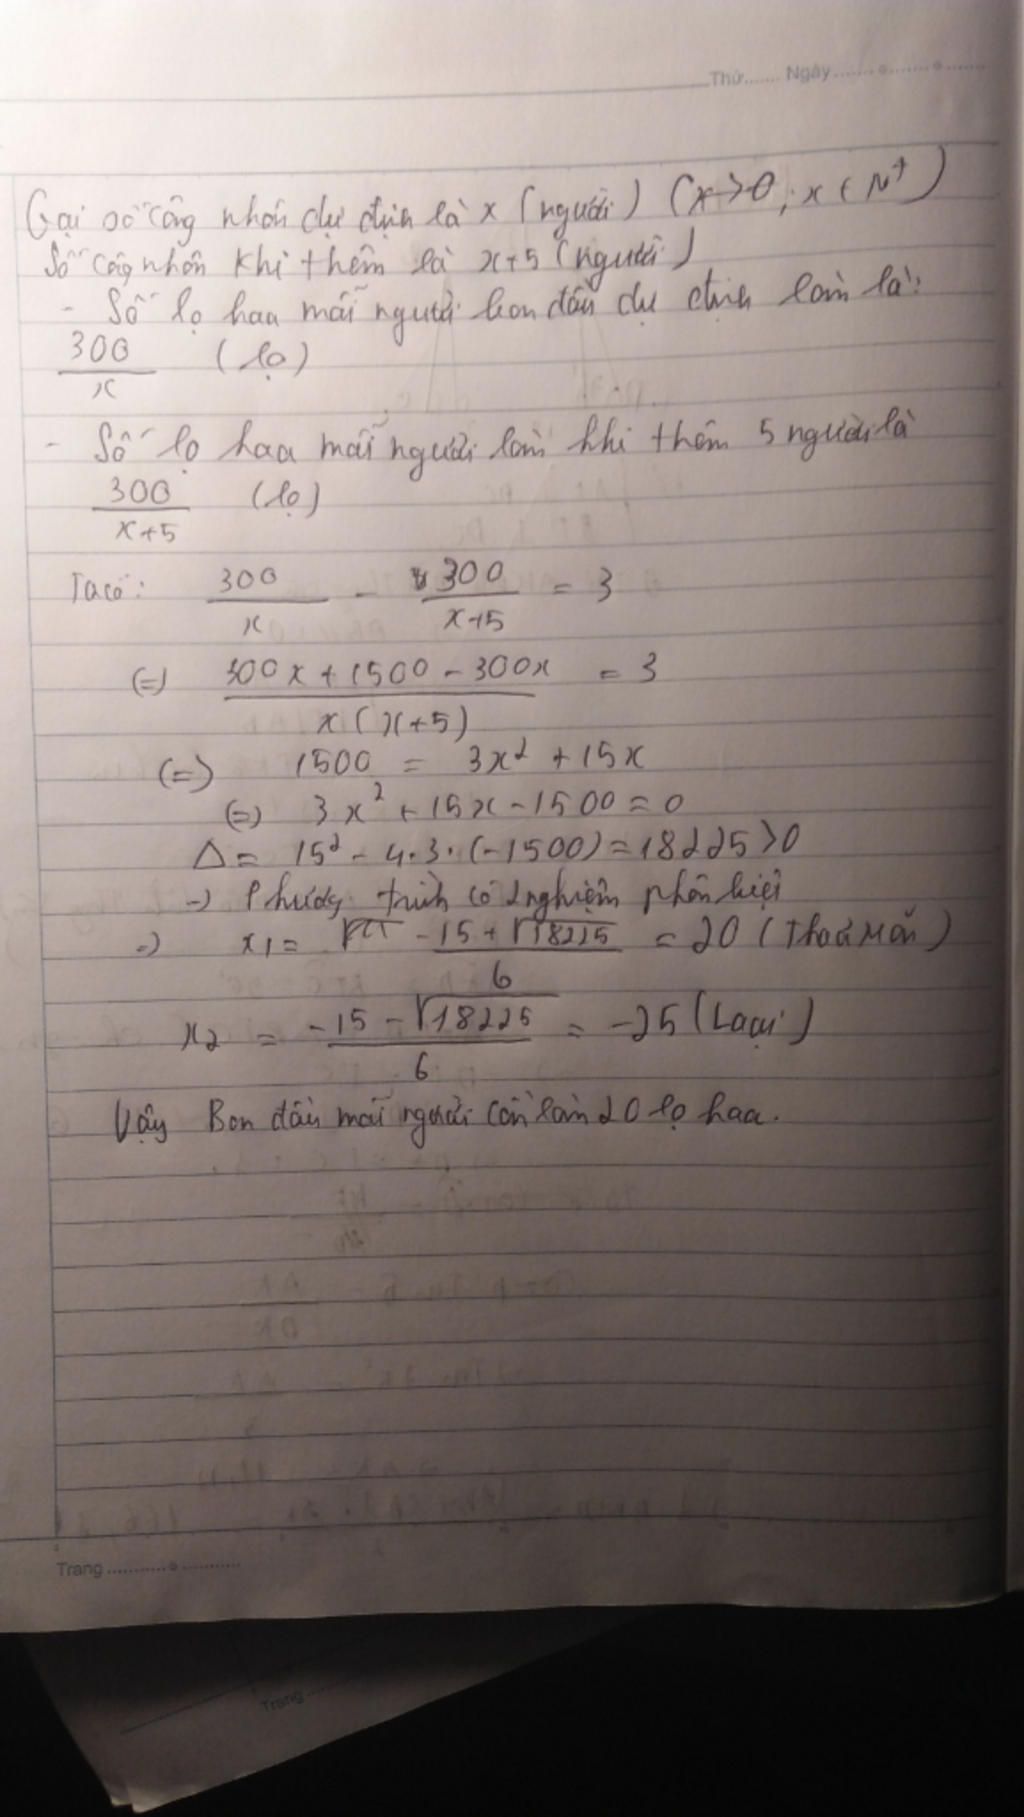 Thứ....... Ngày.......................
Gọi số công nhân dự định là x (người) (x>0; x ∈ N+)
Số công nhân khi thêm là x+5 (người)
- Số lọ hoa mỗi người ban đầu dự định làm là:
300/x (lọ)
- Số lọ hoa mỗi người làm khi thêm 5 người là
300/(x+5) (lọ)
Ta có: 300/x - 300/(x+5) = 3
(=) (300x + 1500 - 300x)/(x(x+5)) = 3
(=) 1500 = 3x² + 15x
(=) 3x² + 15x - 1500 = 0
Δ = 15² - 4.3.(-1500) = 18225 > 0
-) Phương trình có 2 nghiệm phân biệt
=) x1 = (-15 + √18225)/6 = 20 (Thoả Mãn)
x2 = (-15 - √18225)/6 = -25 (Loại)
Vậy Ban đầu mỗi người cần làm 20 lọ hoa.
Trang.......................
Trang